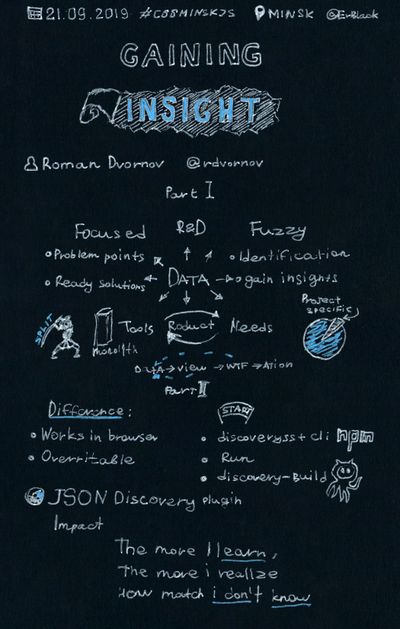 21.09.2019 #CSSMINSKJS MINSK @ErBlack
GAINING
INSIGHT
Roman Dvornov @rdvornov
Part I
Focused R&D Fuzzy
Problem points
Identification
Ready solutions
DATA
gain insights
Project specific
SPLIT
monolith
Tools
Product
Needs
DATA → view → WTF → Action
Part II
Difference:
START
Works in browser
discoveryjs + cli npm
Overritable
Run
discovery-build
JSON Discovery plugin
Impact
The more I learn,
The more i realize
How match i don't know